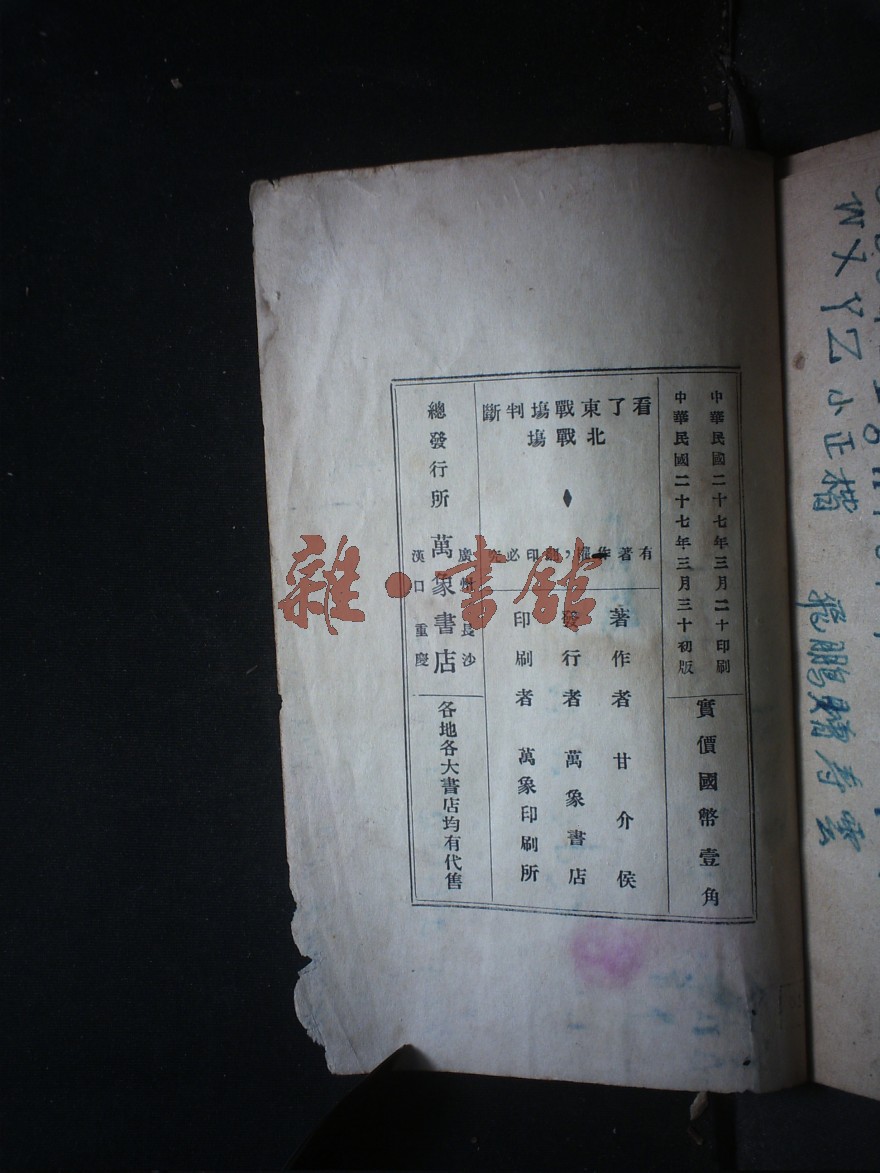 中華民國二十七年三月二十印刷
中華民國二十七年三月三十初版
實價國幣壹角
看了東戰塲判斷
北戰塲
有著作權，翻印必究
著作者 甘介侯
發行者 萬象書店
印刷者 萬象印刷所
總發行所 萬象書店
廣州 長沙
漢口 重慶
各地各大書店均有代售
雜·書館
W X Y Z 小正楷
飛鵬贈壽雲